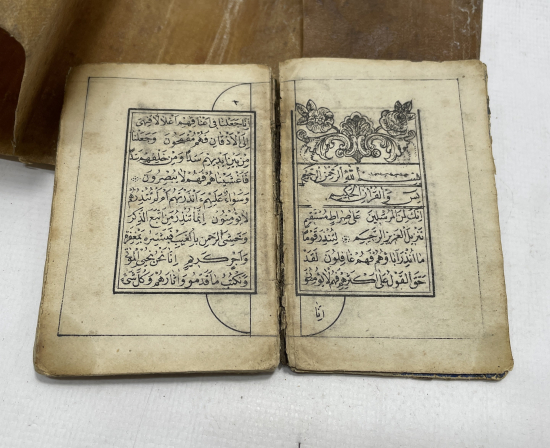 بِسْمِ اللهِ الرَّحْمٰنِ الرَّحِيمِ
يس وَالْقُرْاٰنِ الْحَكِيمِ
اِنَّكَ لَمِنَ الْمُرْسَلِينَ عَلٰى صِرَاطٍ مُسْتَقِيمٍ
تَنْزِيلَ الْعَزِيزِ الرَّحِيمِ لِتُنْذِرَ قَوْمًا
مَا اُنْذِرَ اٰبَاؤُهُمْ فَهُمْ غَافِلُونَ لَقَدْ
حَقَّ الْقَوْلُ عَلٰى اَكْثَرِهِمْ فَهُمْ لَا يُؤْمِنُونَ
اِنَّا
٢
اِنَّا جَعَلْنَا فِي اَعْنَاقِهِمْ اَغْلَالًا فَهِيَ
اِلَى الْاَذْقَانِ فَهُمْ مُقْمَحُونَ وَجَعَلْنَا
مِنْ بَيْنِ اَيْدِيهِمْ سَدًّا وَمِنْ خَلْفِهِمْ سَدًّا
فَاَغْشَيْنَاهُمْ فَهُمْ لَا يُبْصِرُونَ
وَسَوَاءٌ عَلَيْهِمْ ءَاَنْذَرْتَهُمْ اَمْ لَمْ تُنْذِرْهُمْ
لَا يُؤْمِنُونَ اِنَّمَا تُنْذِرُ مَنِ اتَّبَعَ الذِّكْرَ
وَخَشِيَ الرَّحْمٰنَ بِالْغَيْبِ فَبَشِّرْهُ بِمَغْفِرَةٍ
وَاَجْرٍ كَرِيمٍ اِنَّا نَحْنُ نُحْيِي الْمَوْتٰى
وَنَكْتُبُ مَا قَدَّمُوا وَاٰثَارَهُمْ وَكُلَّ شَيْءٍ